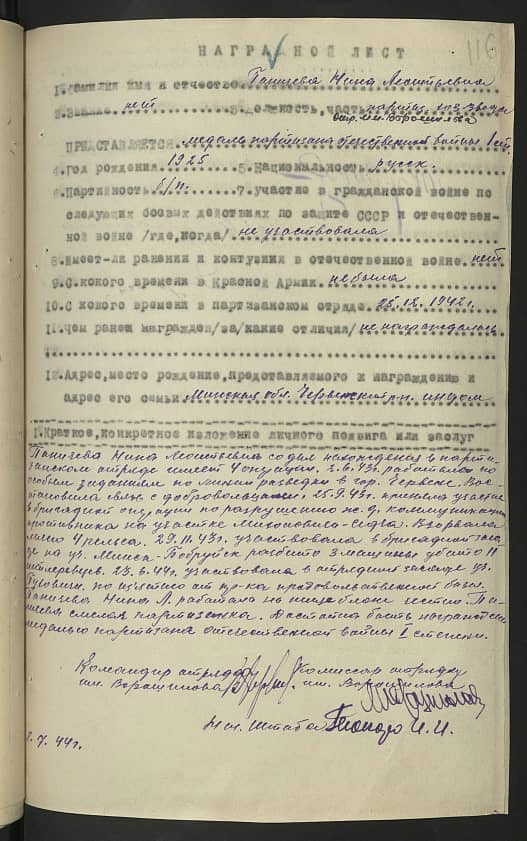 116
НАГРАДНОЙ ЛИСТ
1. Фамилия имя и отчество Панцева Нина Леонтьевна
2. Звание нет 3. Должность, часть партиз. взвода
отр. им. Ворошилова
ПРЕДСТАВЛЯЕТСЯ медаль партизана отечественной войны I ст.
4. Год рождения 1925 5. Национальность русск.
6. Партийность б/п. 7. участие в гражданской войне по
следующих боевых действиях по защите СССР и отечествен-
ной войне /где, когда/ не участвовала
8. Имеет-ли ранения и контузии в отечественной войне нет
9. С кокого времени в Красной Армии не была
10. С кокого времени в партизанском отряде 25.12.1942г.
11. чем ранее награжден/за/какие отличия/ не награждалась
12.
12. Адрес, место рождение, представляемого к награждению и
адрес его семьи Минская обл. Червенский р-н.
1. Краткое, конкретное изложение личного подвига или заслуг
Нина Леонтьевна со дня нахождения в парти-
занском отряде имеет 4 операции. 3.6.43г. работала по
особым заданиям по линии разведки в гор. Червене. Вос-
тановила связь с добровольцами. 25.9.43г. приняла участие
в бригадной операции по разрушению ж.д. коммуникации
противника на участке. Взорвала
лично 4 рельса. 29.11.43г. участвовала в бригадной заса-
де на уч. Минск-Бобруйск разбито 3 машины убито 11
гитлеровцев. 23.6.44г. участвовала в отрядной засаде уч.
по изъятию от пр-ка продовольственной базы.
Нина Л. работала на пищеблоке честно.
смелая партизанка. Достойна быть награждена
медалью партизана отечественной войны I степени.
Командир отряда Комиссар отряда
им. Ворошилова им. Ворошилова
Нач. штаба
7.44г.